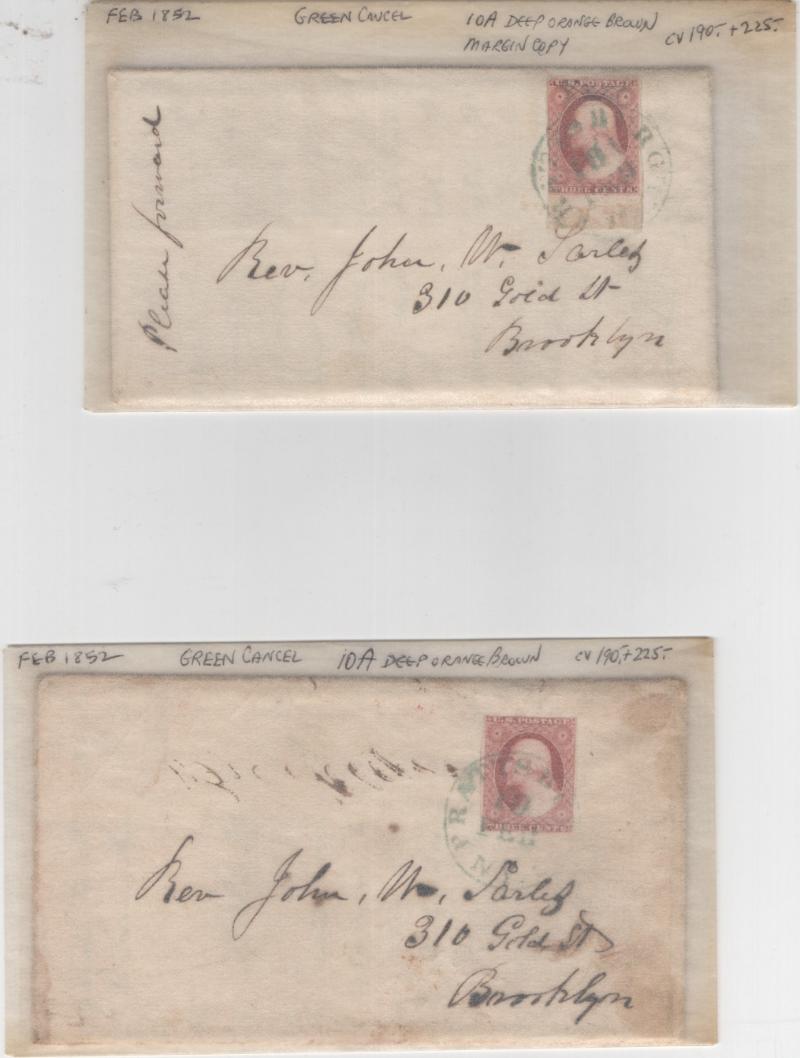 FEB 1852 GREEN CANCEL 10A DEEP ORANGE BROWN CV 190.- + 225.-
MARGIN COPY
Please forward
U.S. POSTAGE
THREE CENTS
Rev. John, W. Sarles
310 Gold St
Brooklyn
FEB 1852 GREEN CANCEL 10A DEEP ORANGE BROWN CV 190.- + 225.-
U.S. POSTAGE
PRATTSB
19
FEB
THREE CENTS
Rev John, W, Sarles
310 Gold St
Brooklyn